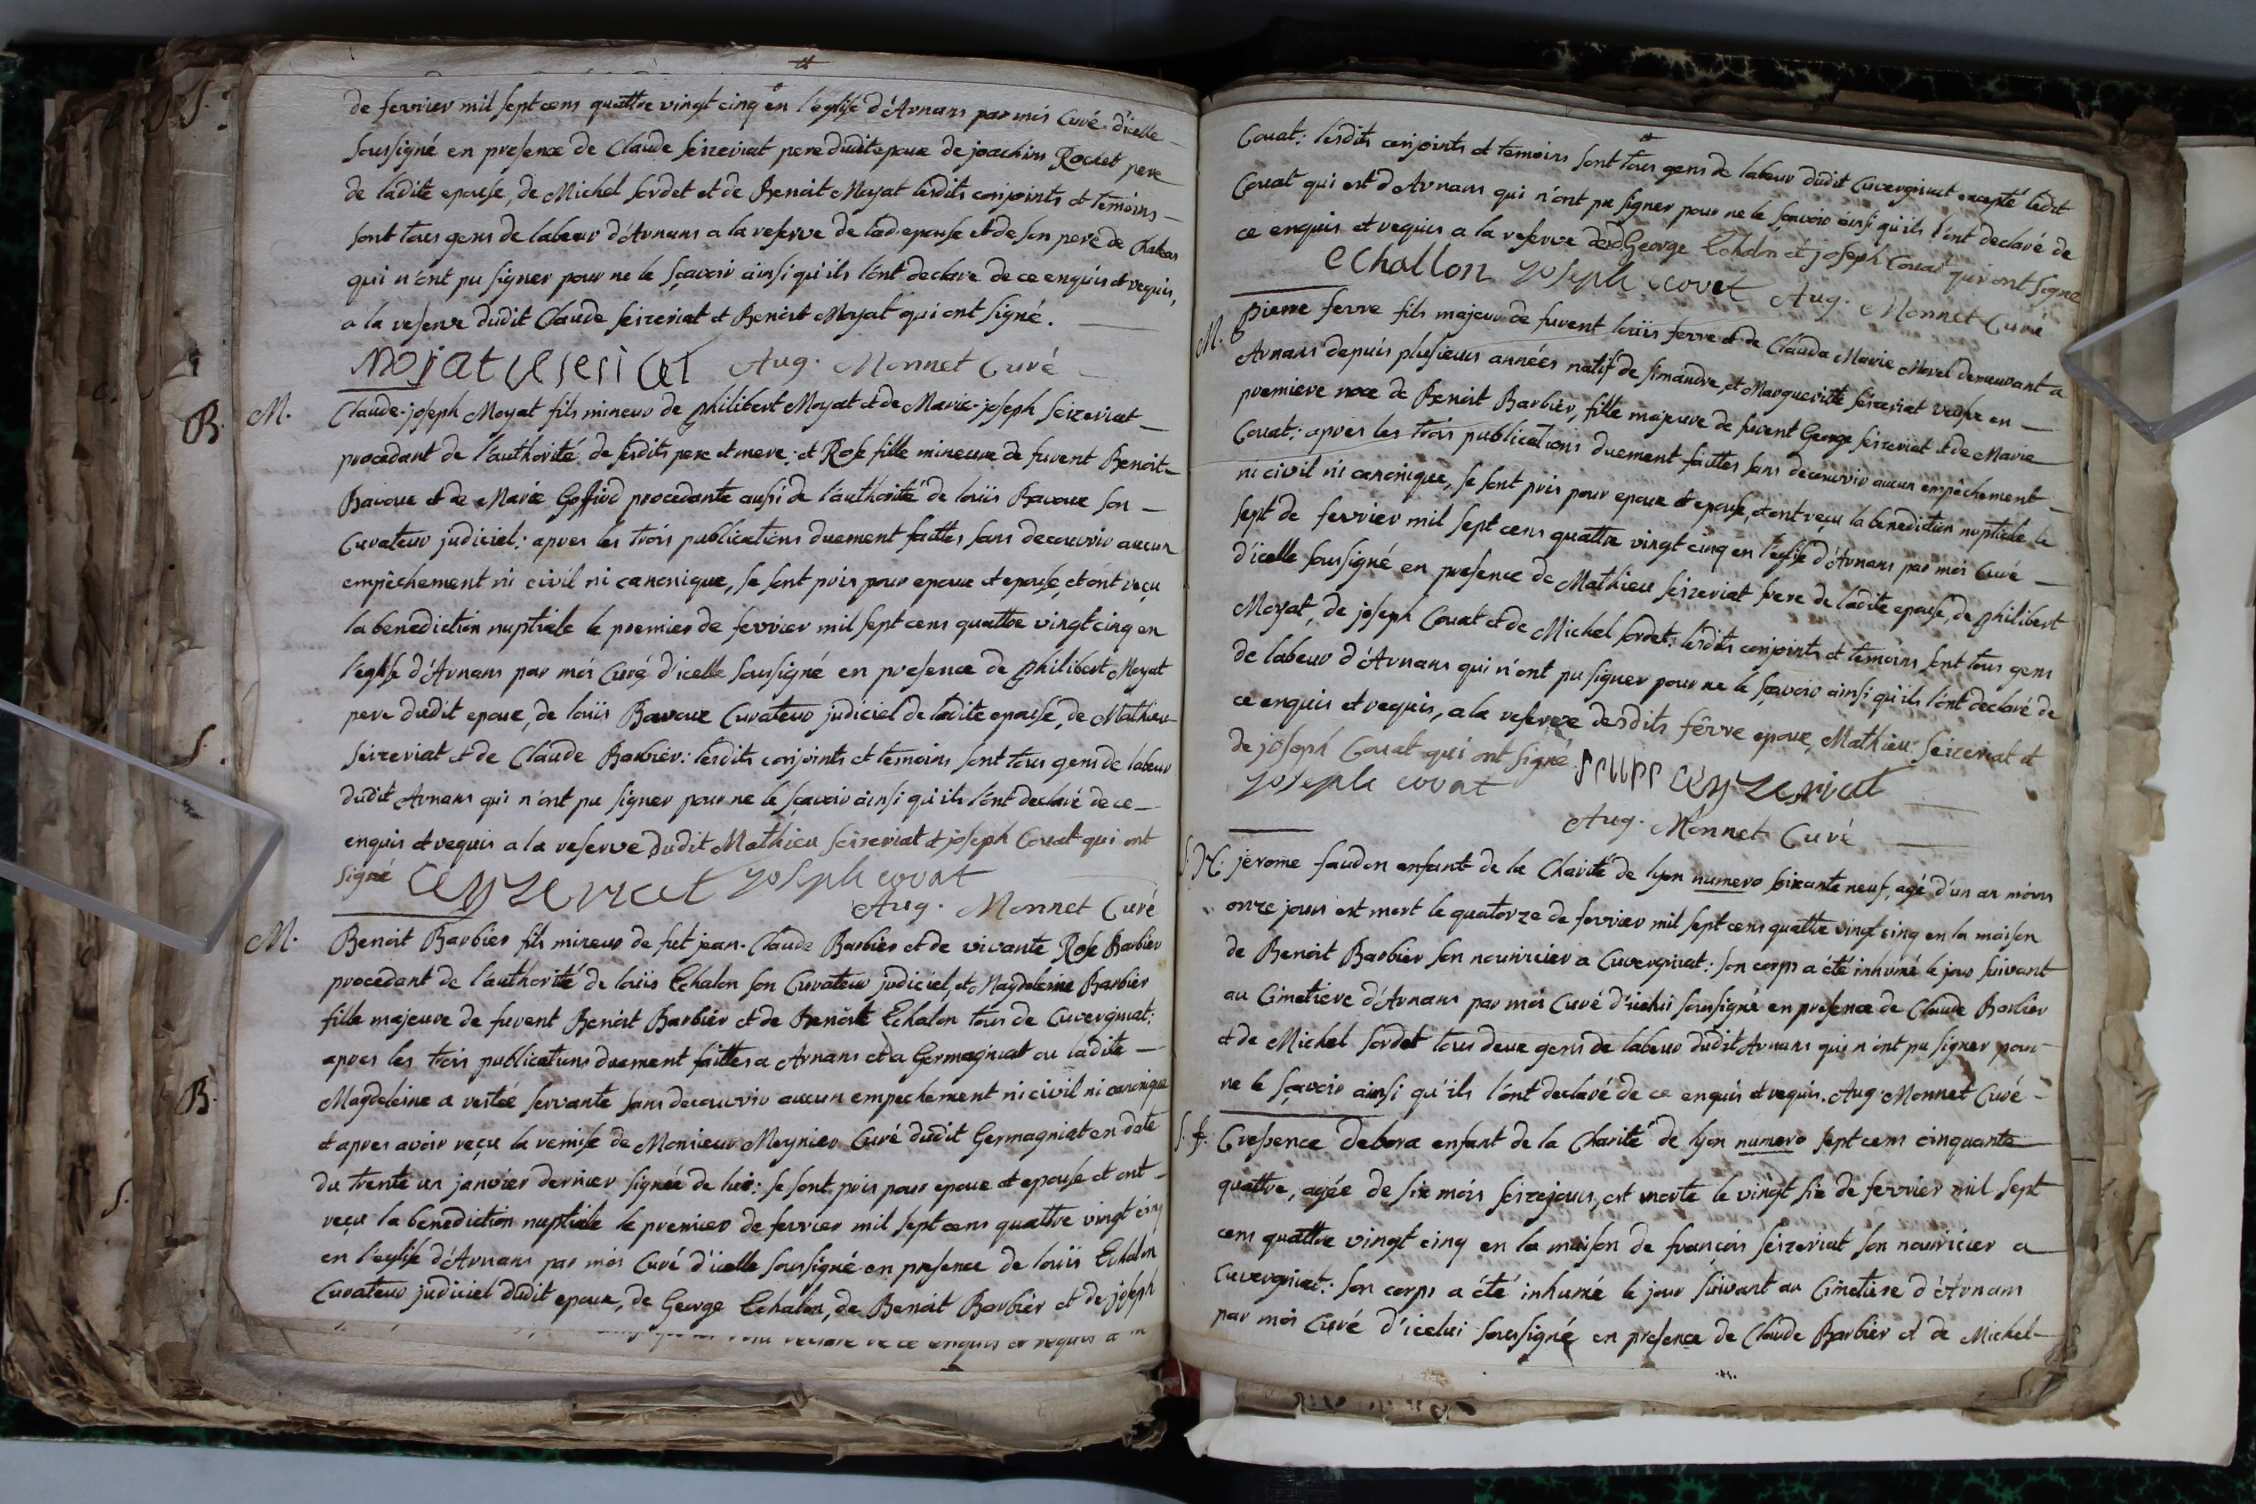 de fevrier mil sept cens quattre vingt cinq en l'eglise d'Arnans par moi Curé d'icelle
soussigné en presence de Claude Seizeriat pere dudit epoux de joachim Rouet pere
de ladite epouse, de Michel Sordet et de Benoit Moyat lesdits conjoints et temoins
sont tous gens de labeur d'Arnans a la reserve de lad epouse et de son pere de
qui n'ont pu signer pour ne le sçavoir ainsi qu'ils l'ont declaré de ce enquis et requis,
a la reserve dudit Claude Seizeriat et Benoit Moyat qui ont signé.
mojat Aug. Monnet Curé
M. Claude-joseph Moyat fils mineur de philibert Moyat et de Marie-joseph Seizeriat
procedant de l'authorité de sesdits pere et mere; et Rose fille mineure de furent Benoit
Bavoux et de Marie Goffiod procedante aussi de l'authorité de loüis Bavoux son
Curateur judiciel: apres les trois publications duement faittes sans decouvrir aucun
empêchement ni civil ni canonique, se sont pris pour epoux et epouse, et ont reçu
la benediction nuptiale le premier de fevrier mil sept cens quattre vingt cinq en
l'eglise d'Arnans par moi Curé d'icelle soussigné en presence de philibert Moyat
pere dudit epoux, de loüis Bavoux Curateur judiciel de ladite epouse, de Mathieu
Seizeriat et de Claude Barbier: lesdits conjoints et temoins sont tous gens de labeur
dudit Arnans qui n'ont pu signer pour ne le sçavoir ainsi qu'ils l'ont declaré de ce
enquis et requis a la reserve dudit Mathieu Seizeriat et joseph Couat qui ont
signé ceyzeriat joseph covat
Aug. Monnet Curé
M. Benoit Barbier fils mineur de fut jean-Claude Barbier et de vivante Rose Barbier
procedant de l'authorité de loüis Echalon son Curateur judiciel, et Magdeleine Barbier
fille majeure de furent Benoit Barbier et de Benoite Echalon tous de Cuvergnat:
apres les trois publications duement faittes a Arnans et a Germagniat ou ladite
Magdeleine a restée servante sans decouvrir aucun empechement ni civil ni canonique
et apres avoir reçu la remise de Monsieur Meynier Curé dudit Germagniat en date
du trente un janvier dernier signée de lui: se sont pris pour epoux et epouse et ont
reçu la benediction nuptiale le premier de fevrier mil sept cens quattre vingt cinq
en l'eglise d'Arnans par moi Curé d'icelle soussigné en presence de loüis Echalon
Curateur judiciel dudit epoux, de George Echalon, de Benoit Barbier et de joseph
Couat: lesdits conjoints et temoins sont tous gens de labeur dudit Cuvergniat excepté ledit
Couat qui est d'Arnans qui n'ont pu signer pour ne le sçavoir ainsi qu'ils l'ont declaré de
ce enquis et requis a la reserve desd George Echalon et joseph Couat qui ont signé
echallon joseph covet Aug. Monnet Curé
M. pierre ferre fils majeur de furent loüis ferre et de Claudа Marie Morel demeurant a
Arnans depuis plusieurs années natif de simandre, et Marguerite Seizeriat veufve en
premiere noce de Benoit Barbier, fille majeure de furent George Seizeriat et de Marie
Couat: apres les trois publications duement faittes sans decouvrir aucun empêchement
ni civil ni canonique, se sont pris pour epoux et epouse, et ont reçu la benediction nuptiale le
sept de fevrier mil sept cens quattre vingt cinq en l'eglise d'Arnans par moi Curé
d'icelle soussigné en presence de Mathieu Seizeriat frere de ladite epouse, de philibert
Moyat, de joseph Couat et de Michel Sordet: lesdits conjoints et temoins sont tous gens
de labeur d'Arnans qui n'ont pu signer pour ne le sçavoir ainsi qu'ils l'ont declaré de
ce enquis et requis, a la reserve desdits fêrre epoux, Mathieu Seizeriat et
de joseph Couat qui ont signé ceyzeriat
joseph covat
Aug. Monnet Curé
S. M. jerome faudon enfant de la Charité de lyon numero soixante neuf, agé d'un an moins
onze jours est mort le quatorze de fevrier mil sept cens quattre vingt cinq en la maison
de Benoit Barbier son nourricier a Cuvergniat: son corps a été inhumé le jour suivant
au Cimetiere d'Arnans par moi Curé d'icelui soussigné en presence de Claude Barbier
et de Michel Sordet tous deux gens de labeur dudit Arnans qui n'ont pu signer pour
ne le sçavoir ainsi qu'ils l'ont declaré de ce enquis et requis. Aug. Monnet Curé
S. f. Cressence Debora enfant de la Charité de lyon numero sept cens cinquante
quattre, agée de six mois seize jours, est morte le vingt six de fevrier mil sept
cens quattre vingt cinq en la maison de françois Seizeriat son nourricier a
Cuvergniat: son corps a été inhumé le jour suivant au Cimetiere d'Arnans
par moi Curé d'icelui soussigné en presence de Claude Barbier et de Michel